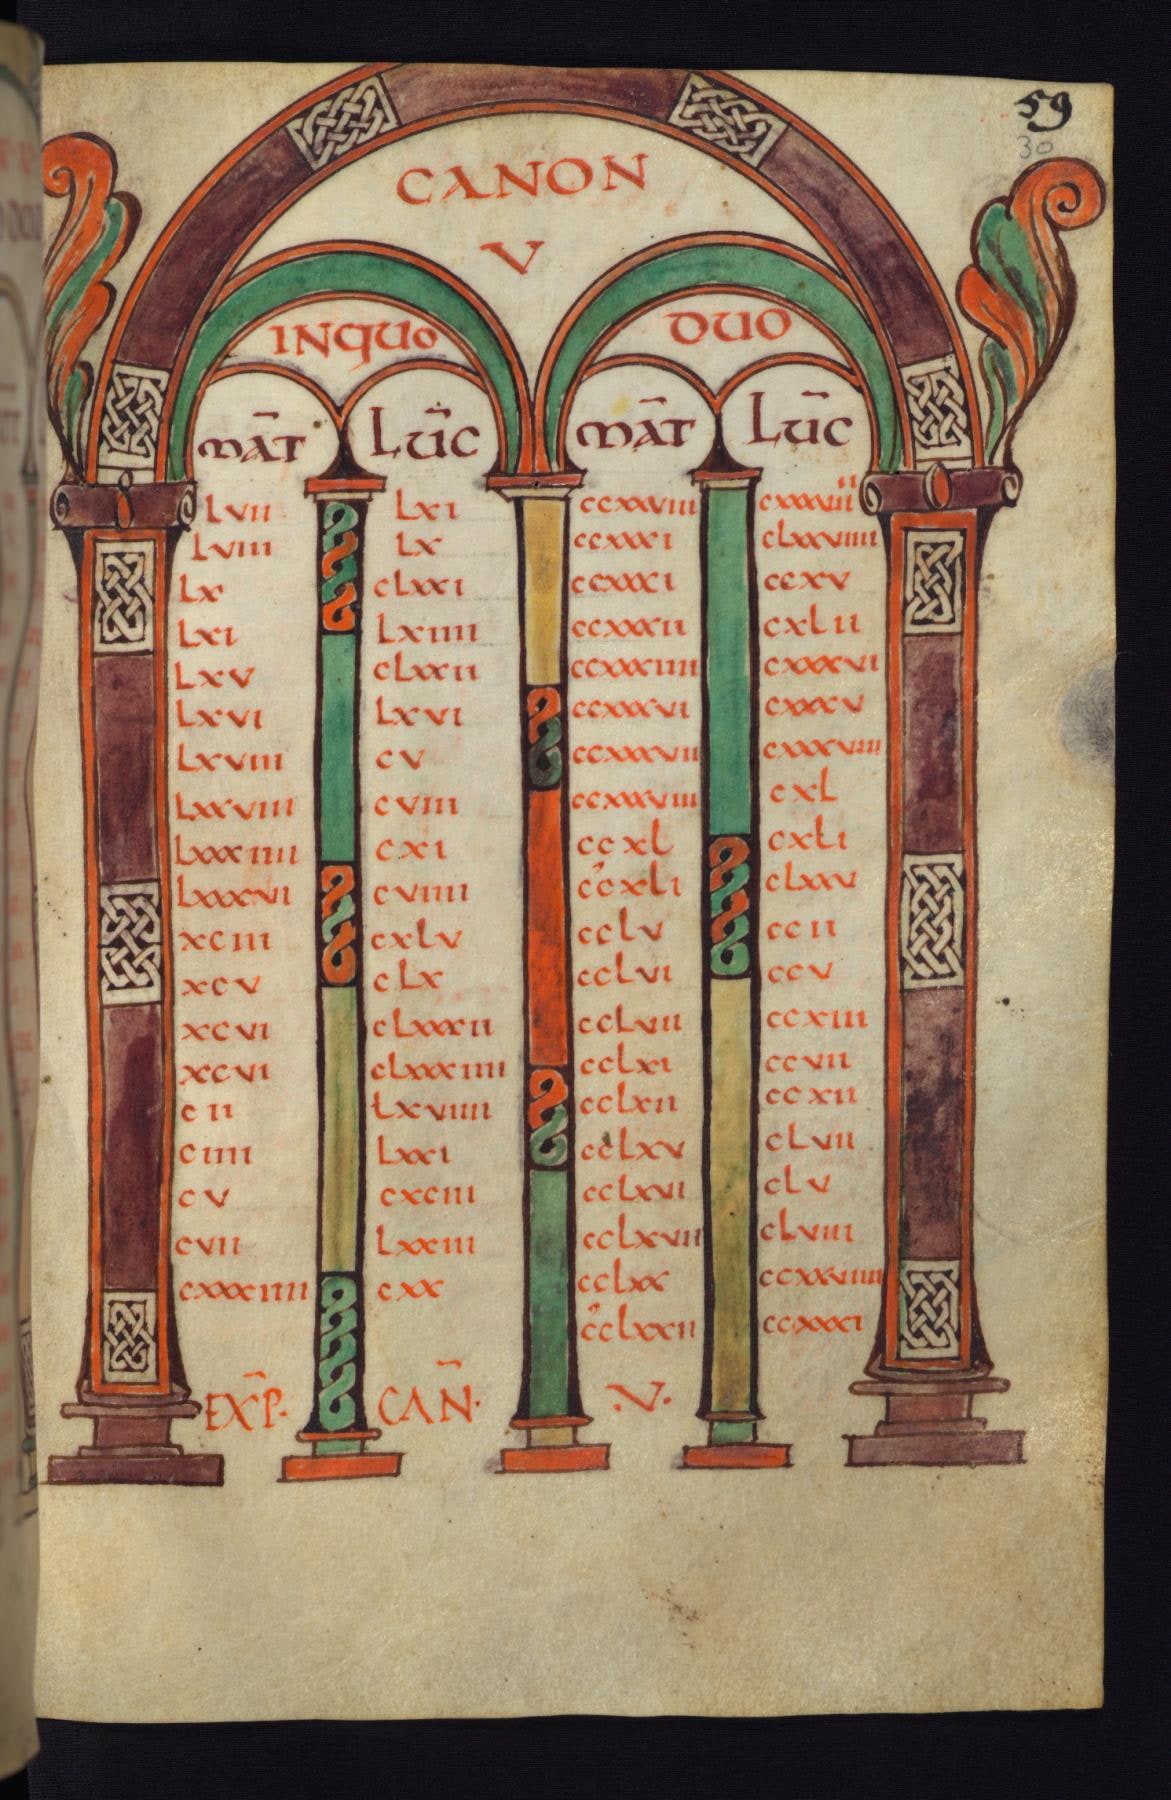 59
30
CANON
V
INQUO DUO
MĀT LŪC MĀT LŪC
LVII LXI CCXXVIII CXXXVIII
LVIII LX CCXXXI CLXXVIIII
LX CLXXI CCXXXI CCXV
LXI LXIIII CCXXXII CXLII
LXV CLXXII CCXXXIIII CXXXVI
LXVI LXVI CCXXXVI CXXXV
LXVIII CV CCXXXVII CXXXVIIII
LXXVIII CVIII CCXXXVIII CXL
LXXXIIII CXI CCXL CXLI
LXXXVI CVIIII CCXLI CLXXV
XCIII CXLV CCLV CCII
XCV CLX CCLVI CCV
XCVI CLXXXII CCLVII CCXIII
XCVI CLXXXIIII CCLXI CCVII
CII LXVIIII CCLXII CCXII
CIIII LXXI CCLXV CLVII
CV CXCIII CCLXVI CLV
CVII LXXIII CCLXVII CLVIII
CXXXIIII CXX CCLXX CCXXVIIII
CCLXXII CCXXXI
EX̄P· CAN̄· ·V·